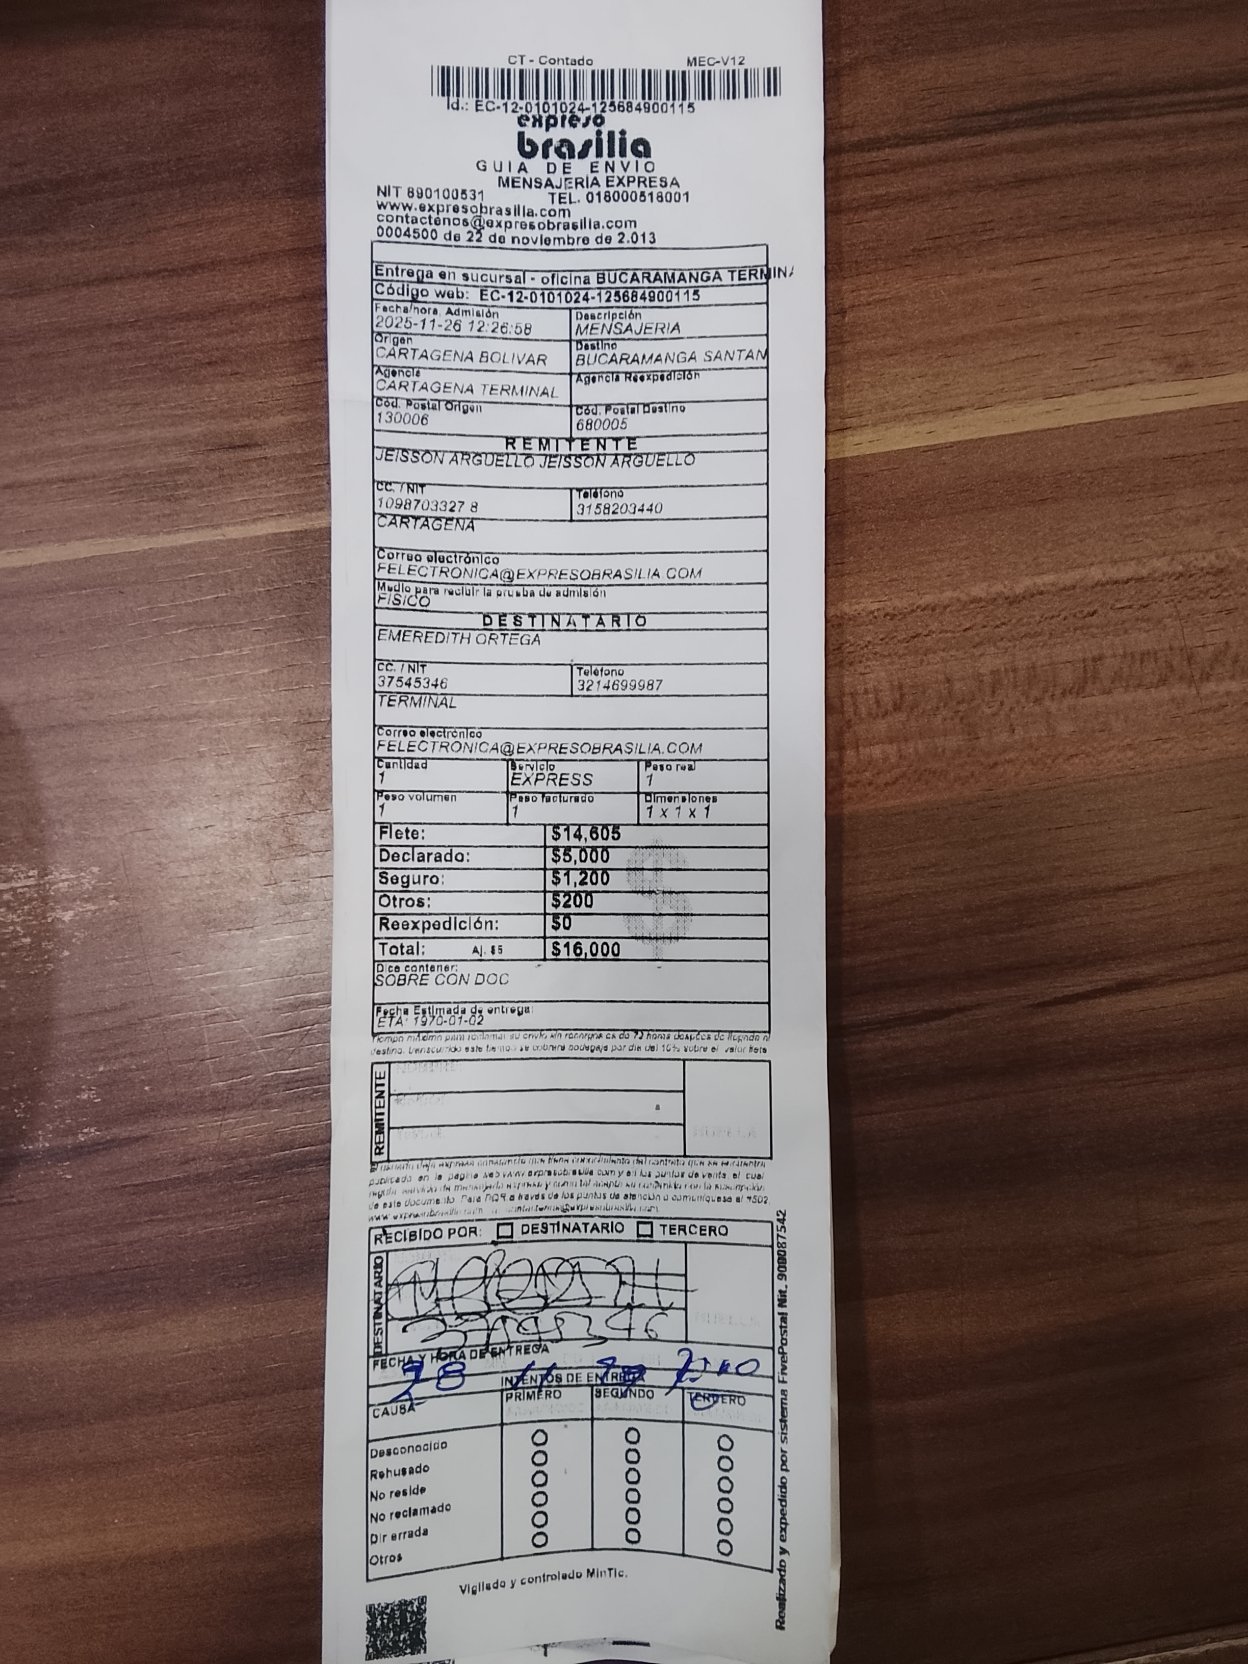 CT - Contado MEC-V12
Id.: EC-12-0101024-125684900115
expreso
brasilia
GUIA DE ENVIO
MENSAJERIA EXPRESA
NIT 890100531 TEL. 018000518001
www.expresobrasilla.com
contactenos@expresobrasilia.com
0004500 de 22 de noviembre de 2.013
Entrega en sucursal - oficina BUCARAMANGA TERMINA
Código web: EC-12-0101024-125684900115
Fecha/hora, Admisión Descripción
2025-11-26 12:26:58 MENSAJERIA
Origen Destino
CARTAGENA BOLIVAR BUCARAMANGA SANTAN
Agencia Agencia Reexpedición
CARTAGENA TERMINAL
Cód. Postal Origen Cód. Postal Destino
130006 680005
REMITENTE
JEISSON ARGUELLO JEISSON ARGUELLO
CC. / NIT Teléfono
1098703327 8 3158203440
CARTAGENA
Correo electrónico
FELECTRONICA@EXPRESOBRASILIA COM
Medio para recibir la prueba de admisión
FISICO
DESTINATARIO
EMEREDITH ORTEGA
CC. / NIT Teléfono
37545346 3214699987
TERMINAL
Correo electrónico
FELECTRONICA@EXPRESOBRASILIA.COM
Cantidad Servicio Peso real
1 EXPRESS 1
Peso volumen Peso facturado Dimensiones
1 1 1 x 1 x 1
Flete: $14,605
Declarado: $5,000
Seguro: $1,200
Otros: $200
Reexpedición: $0
Total: Aj. $5 $16,000
Dice contener:
SOBRE CON DOC
Fecha Estimada de entrega:
ETA: 1970-01-02
Tiempo máximo para reclamar su envío sin recargos es de 72 horas después de llegada a
destino, transcurrido este tiempo se cobrará bodegaje por día del 10% sobre el valor flete
REMITENTE
publicado en la página web www.expresobrasilia.com y en los puntos de venta, el cual
de este documento. Para PQR a través de los puntos de atención o comuníquese al #502,
RECIBIDO POR: DESTINATARIO TERCERO
DESTINATARIO
37545346
FECHA Y HORA DE ENTREGA
28 11
INTENTOS DE ENTREGA
CAUSA PRIMERO SEGUNDO TERCERO
Desconocido
Rehusado
No reside
No reclamado
Dir errada
Otros
Vigilado y controlado MinTic.
Realizado y expedido por sistema FivePostal Nit. 900087542